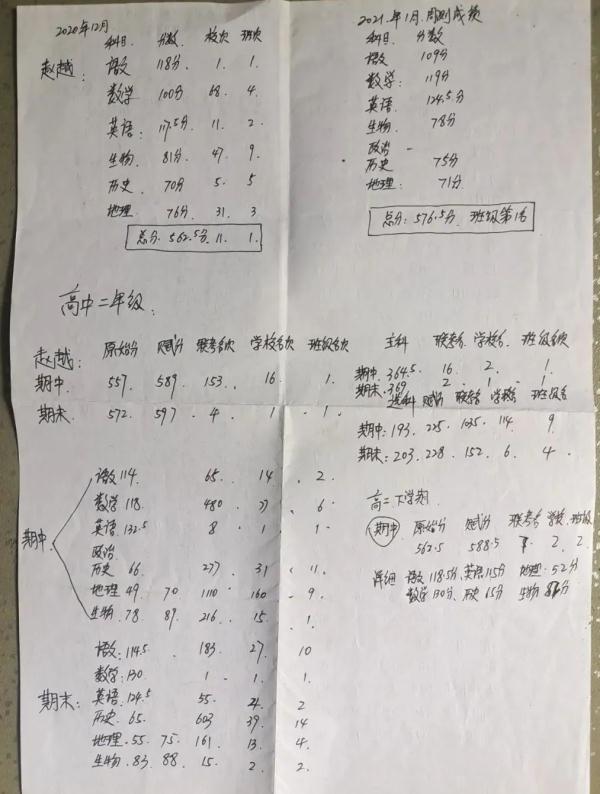 2020年12月
科目. 分数. 校次 班次
赵越: 语文 118分 1. 1.
数学 100分 68. 4.
英语: 117.5分 11. 2
生物. 81分. 47. 9.
历史. 70分 5. 5
地理. 76分. 31. 3
总分. 562.5分. 11. 1.
2021.年1月.周测成绩
科目. 分数
语文 109分
数学: 119分
英语. 124.5.分
生物. 78分
政治 -
历史 75分
地理: 71分.
总分: 576.5分. 班级第1名
高中二年级:
赵越: 原始分 赋分 联考名次 学校名次 班级名次
期中: 557. 589. 153. 16. 1.
期末: 572. 597. 4. 1. 1.
主科 联考名 学校名. 班级名次
期中 364.5. 16. 2. 1.
期末. 369 2. 1. 1.
选科 赋分 联考名 学校名 班级名
期中: 193. 225. 1035. 114. 9
期末: 203. 228. 152. 6. 4.
期中.
语文 114. 65. 14. 2.
数学 118. 480. 6
英语: 132.5 8. 1. 1.
政治
历史 66 277. 31. 11.
地理 49. 70 1110. 160. 9.
生物. 78 89. 216. 15. 1.
期末:
语文: 114.5. 183. 27. 10
数学: 130 1. 1. 1.
英语. 124.5 55. 24. 2
历史. 65. 603 39. 14
地理. 55. 75. 161. 13. 4.
生物. 83. 88. 15. 2. 2.
高二下学期
期中 原始分 赋分 联考名 学校 班级
562.5 588.5 2. 2.
详细 语文 118.5分. 英语 115分 地理. 52分
数学 130分. 历史 65分 生物